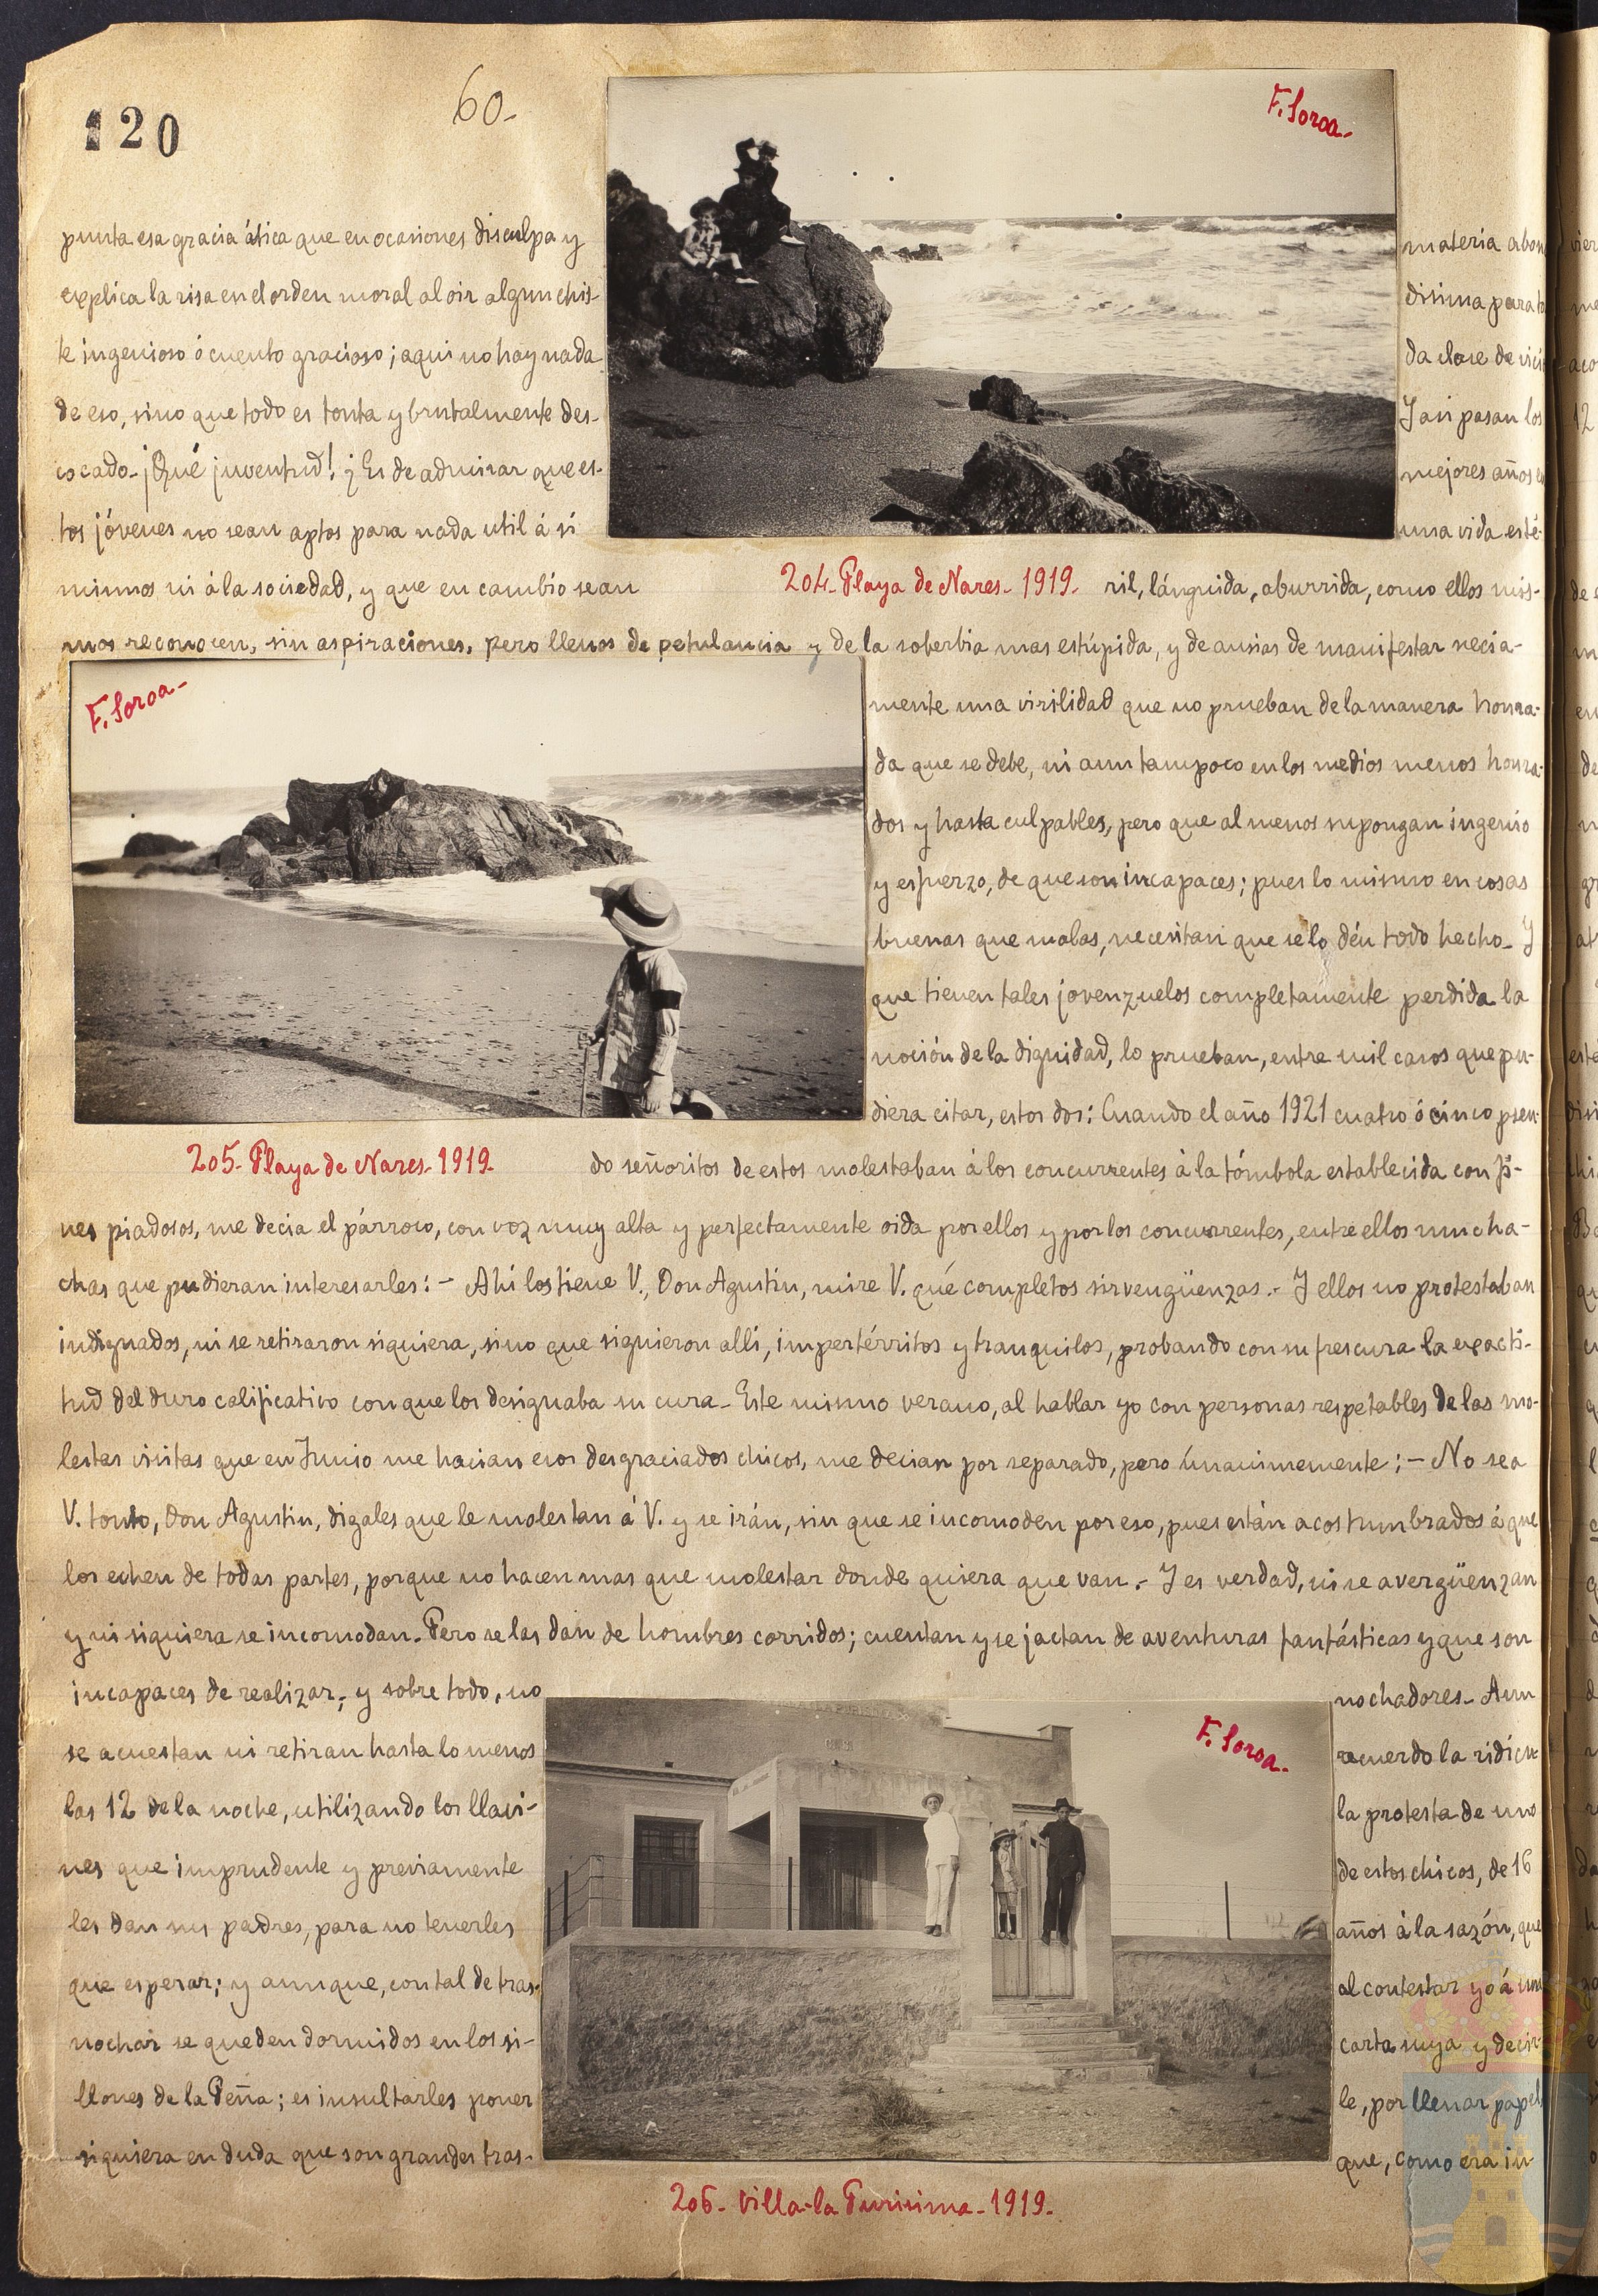 120
60-
F. Soroa-
punta esa gracia ática que en ocasiones disculpa y
explica la risa en el orden moral al oir algun chis-
te ingenioso ó cuento gracioso; aqui no hay nada
de eso, sino que todo es tonta y brutalmente des-
cocado- ¡Qué juventud! ¿Es de admirar que es-
tos jóvenes no sean aptos para nada util á si
mismos ni á la sociedad, y que en cambio sean
materia abun
disima para to
da clase de vicio
Y asi pasan los
mejores años en
una vida esté-
204- Playa de Nares- 1919.
ril, lánguida, aburrida, como ellos mis-
mos reconocen, sin aspiraciones, pero llenos de petulancia y de la soberbia mas estúpida, y de ansias de manifestar necia-
F. Soroa-
mente una virilidad que no prueban de la manera honra-
da que se debe, ni aun tampoco en los medios menos honra-
dos y hasta culpables, pero que al menos supongan ingenio
y esfuerzo, de que son incapaces; pues lo mismo en cosas
buenas que malas, necesitan que se lo dén todo hecho- Y
que tienen tales jovenzuelos completamente perdida la
noción de la dignidad, lo prueban, entre mil casos que pu-
diera citar, estos dos: Cuando el año 1921 cuatro ó cinco pseu-
205- Playa de Nares- 1919.
do señoritos de estos molestaban á los concurrentes á la tómbola establecida con fi-
nes piadosos, me decia el párroco, con voz muy alta y perfectamente oida por ellos y por los concurrentes, entre ellos mucha-
chas que pudieran interesarles: - Ahi los tiene V., Don Agustin, mire V. qué completos sirvengüenzas.- Y ellos no protestaban
indignados, ni se retiraron siquiera, sino que siguieron alli, impertérritos y tranquilos, probando con su frescura la exacti-
tud del duro calificativo con que los designaba su cura- Este mismo verano, al hablar yo con personas respetables de las mo-
lestas visitas que en Junio me hacian esos desgraciados chicos, me decian por separado, pero únanimemente; - No sea
V. tonto, Don Agustin, digales que le molestan á V. y se irán, sin que se incomoden por eso, pues están acostumbrados á que
los echen de todas partes, porque no hacen mas que molestar donde quiera que van.- Y es verdad, ni se avergüenzan
y ni siquiera se incomodan. Pero se las dan de hombres corridos; cuentan y se jactan de aventuras fantásticas y que son
incapaces de realizar; y sobre todo, no
se acuestan ni retiran hasta lo menos
las 12 de la noche, utilizando los llavi-
nes que imprudente y previamente
les dan sus padres, para no tenerles
que esperar; y aunque, con tal de tras-
nochar se queden dormidos en los si-
llones de la Peña; es insultarles poner
siquiera en duda que son grandes tras-
F. Soroa-
nochadores- Aun
recuerdo la ridicu
la protesta de uno
de estos chicos, de 16
años á la sazón, que
al contestar yo á una
carta suya y decir-
le, por llenar papel,
que, como era in-
206- Villa-la Purisima- 1919-